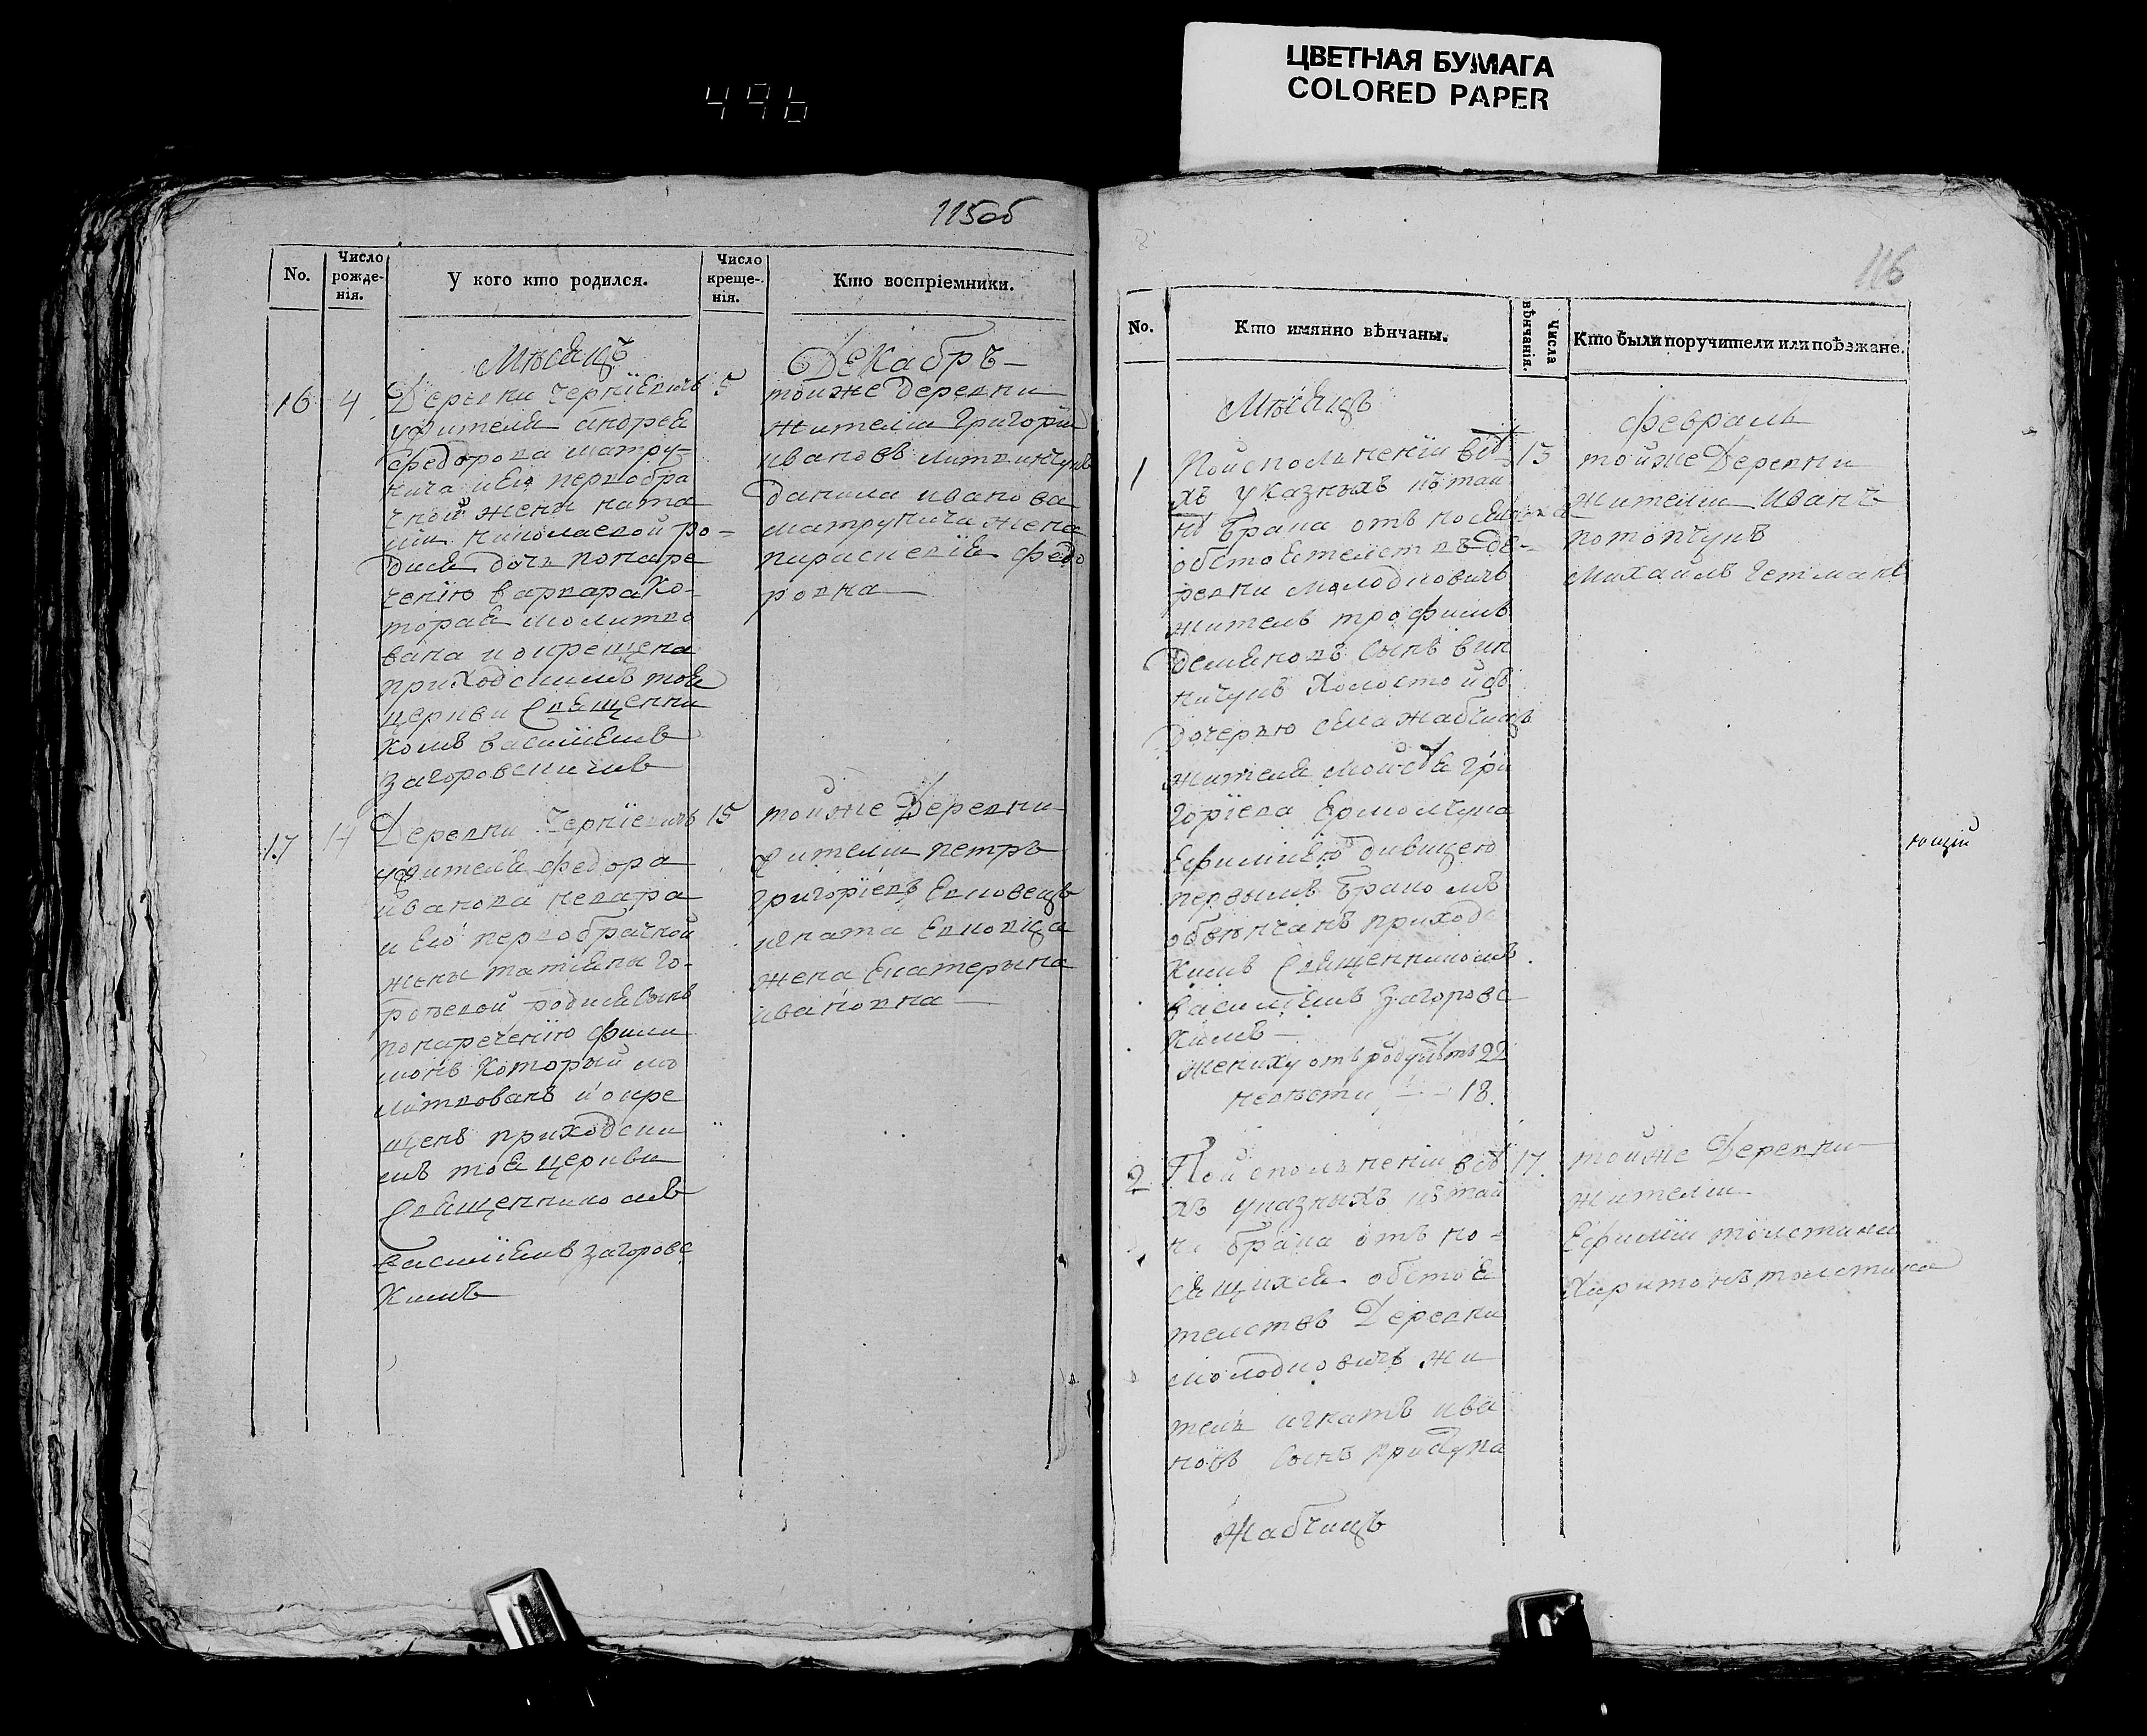 ЦВЕТНАЯ БУМАГА
COLORED PAPER
496
115об
No.
Число рожде-нія.
У кого кто родился.
Число креще-нія.
Кто воспріемники.
Мѣсяцъ
Декабръ
16 4
Деревни Чернїевичъ 5
ужителя андрея
федорова матру-
нича и его первобра
чной жены ната
лїи николаевой ро-
дися дочь понаре
ченїю варвара Ко-
торая молитво
вана и окрещена
приходскимъ тоя
церкви Священни
комъ василїемъ
загоровскимъ
тойже деревни
жители григорїй
ивановъ литвинчукъ
данила иванова
матрунича жена
параскевїя федо
ровна
17 14
Деревни Чернїевичъ 15
ужителя федора
иванова невара
и его первобрачной
жены татїяны го-
родися сынъ
понаречению фили
монъ Который мо
литвованъ и окре
щенъ приходски
мъ тоя церкви
Священникомъ
василїемъ загоровс
кимъ
тойже Деревни
жители петръ
григорїевъ Ековецъ
игната
жена Екатерына
ивановна
116
No.
Кто имянно вѣнчаны.
Числа вѣнчанія.
Кто были поручители или поѣзжане.
Мѣсяцъ
февраль
1
Поисполненїи всѣ 13
хъ указныхъ ктаи
нѣ брака относящихся
обстоятелствъ де-
ревни молодковичъ
житель трофимъ
демяновъ сынъ вин
ничукъ холостой съ
дочерью села жабчицъ
жителя моисѣя гри
горїева Ермолчука
Ефимїею дивицею
первымъ бракомъ
обвѣнчанъ приходс
кимъ Священникомъ
василїемъ загоровс
кимъ
жениху отъ роду лѣтъ 22
невѣсти 18.
тойже Деревни
жители Иванъ
потопчукъ
михаилъ гетманъ
ющїй
2
Поисполненїи всѣ 17.
хъ указныхъ ктаи
нѣ брака отъ но-
сящихся обстоя
телствъ Деревни
молодковичъ жи
тель игнатъ ива
новъ сынъ
жабчицъ
тойже Деревни
жители
Ефимїй
харитонъ